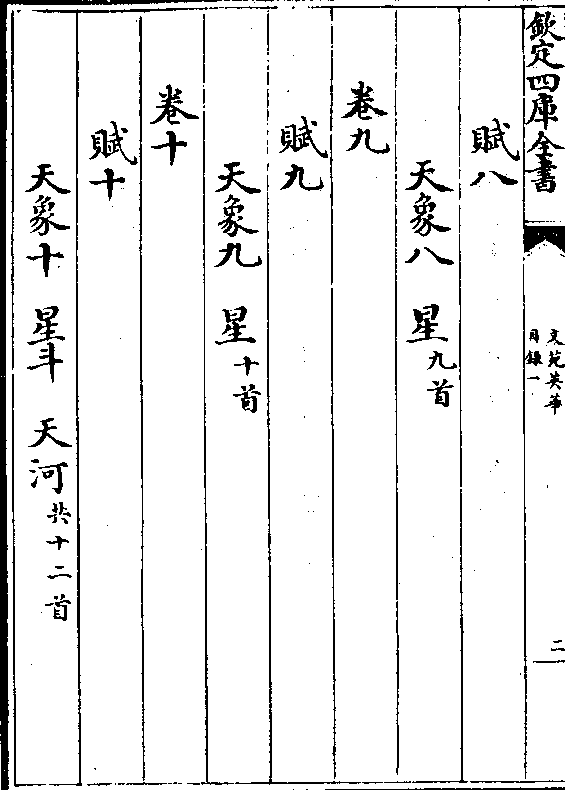 欽定四庫全書
文苑英華
目録一
二
賦八
天象八　星九首
卷九
賦九
天象九　星十首
卷十
賦十
天象十　星斗　天河共十二首